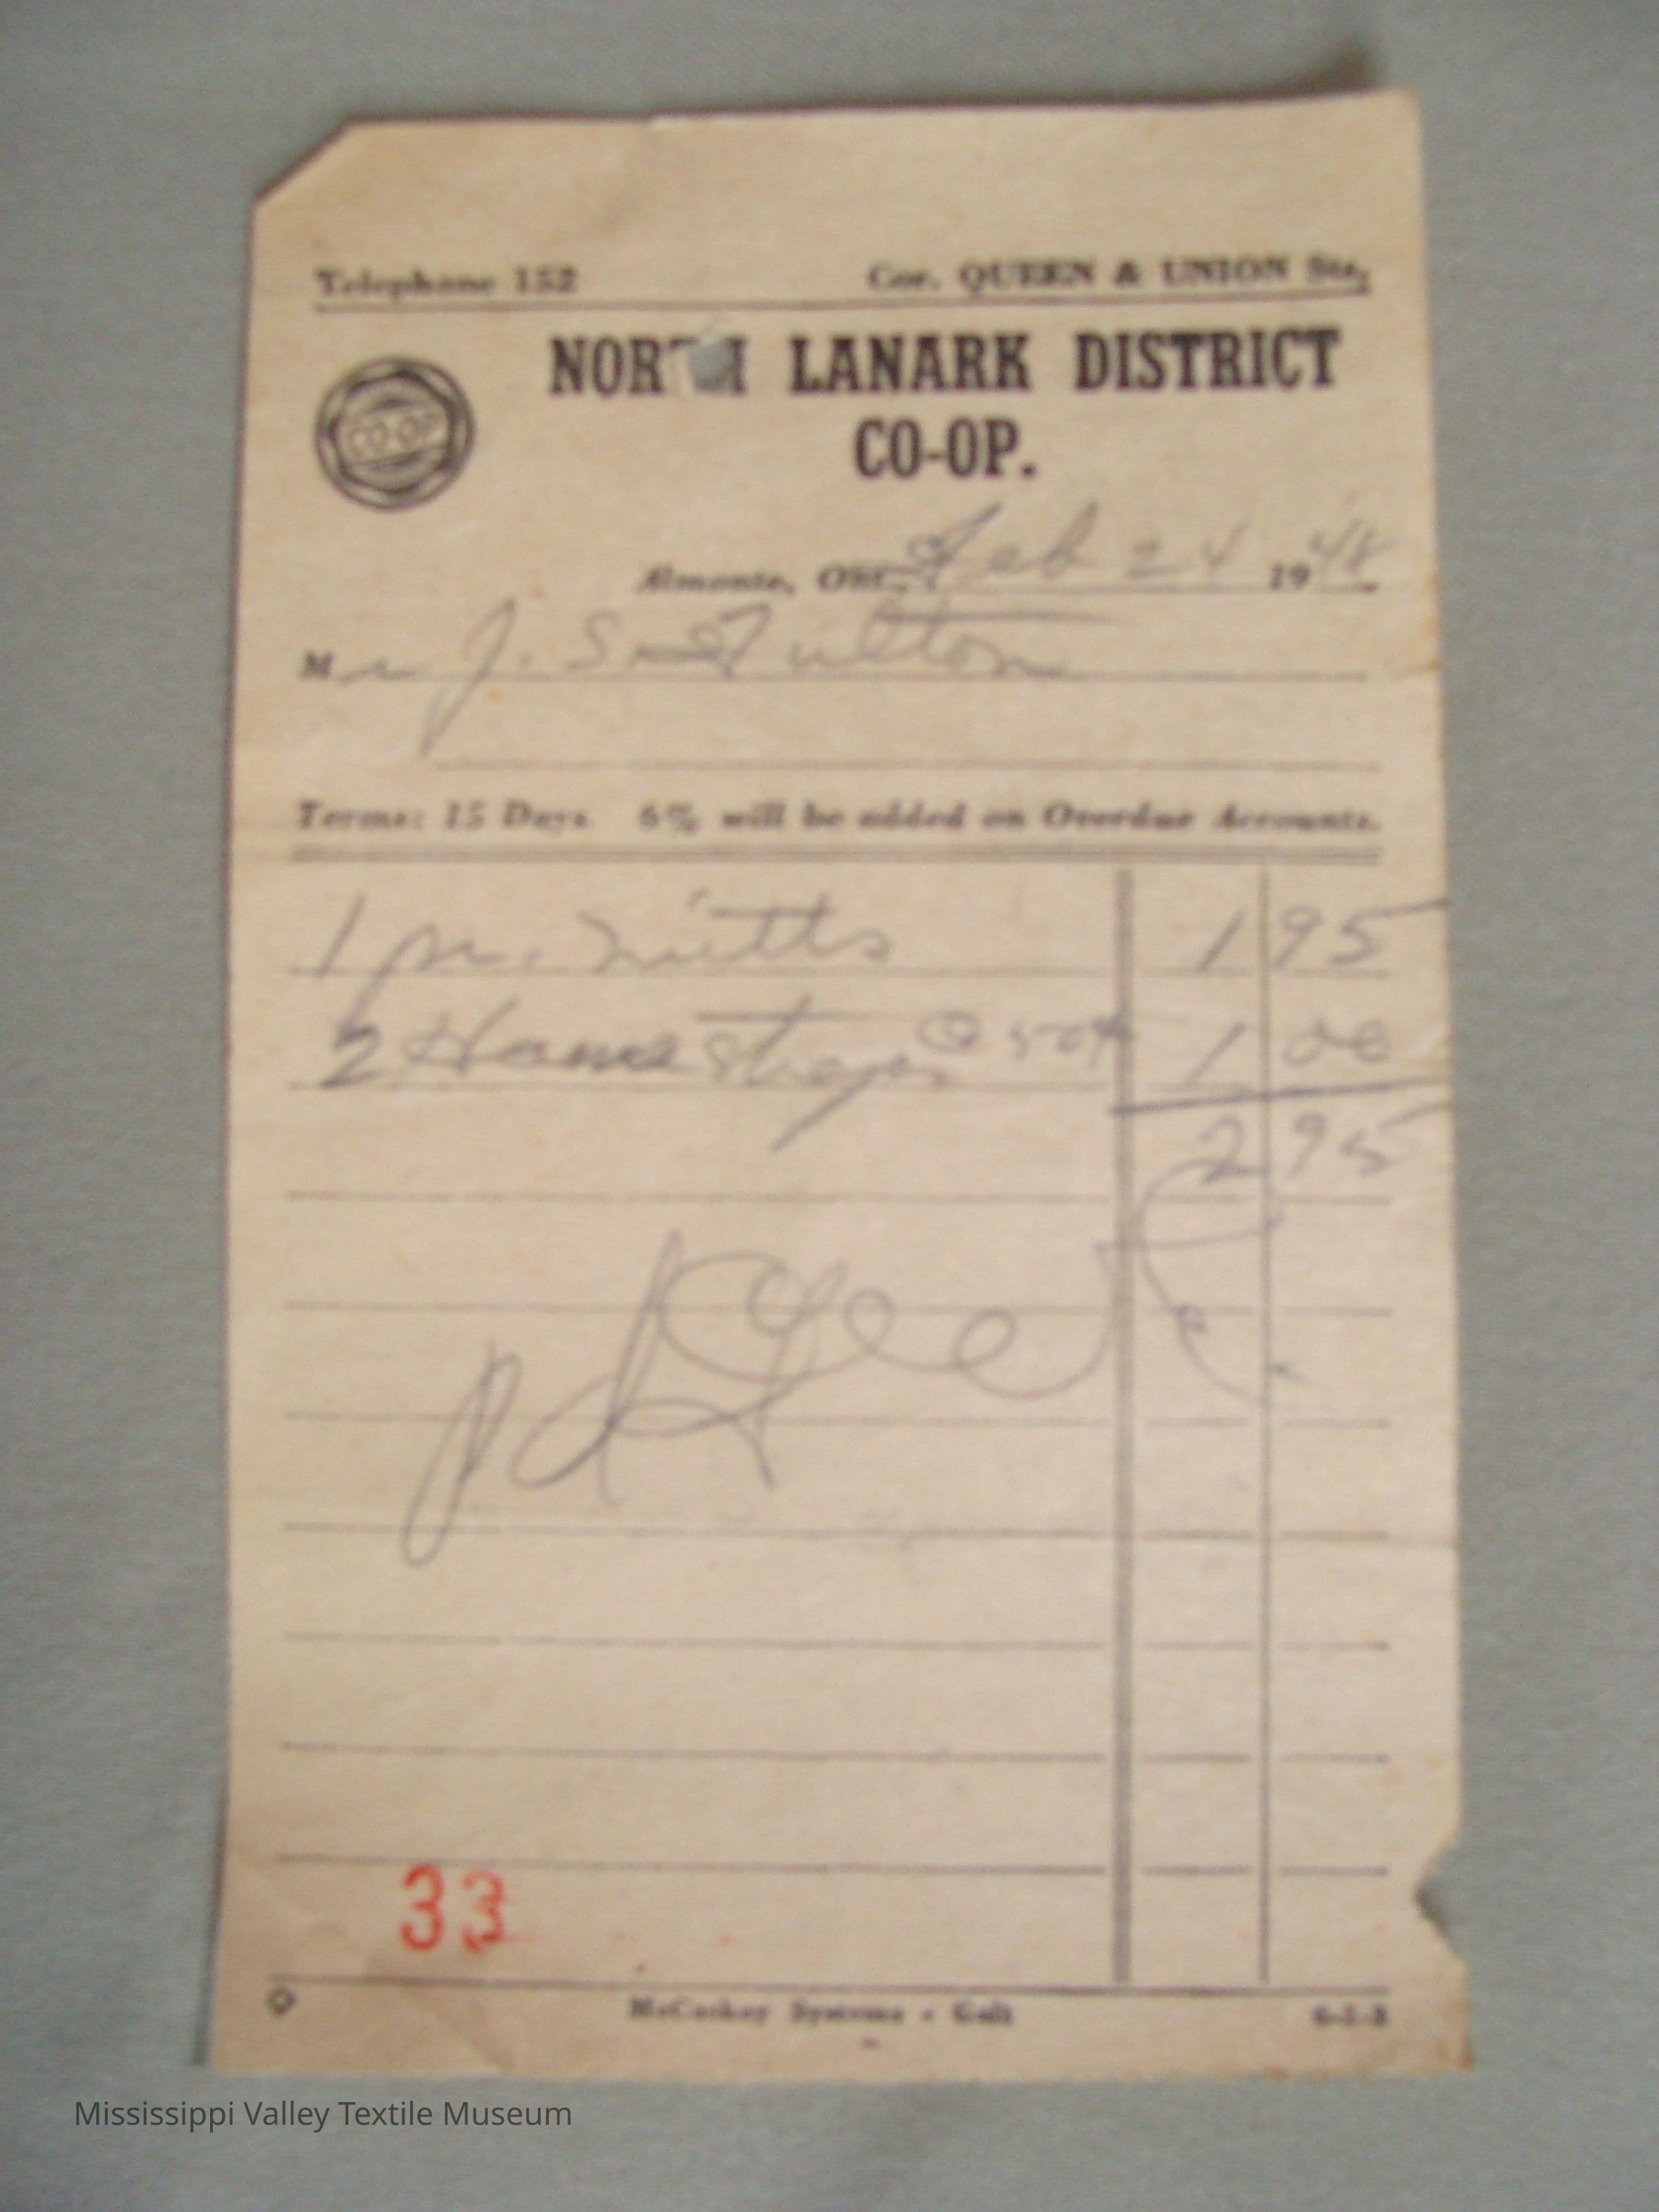 Telephone 152 Cor. QUEEN & UNION Sts.
CO-OP
NORTH LANARK DISTRICT
CO-OP.
Almonte, Ont., Feb 24 1948
Mr J. S. Fulton
Terms: 15 Days. 6% will be added on Overdue Accounts.
1 pr. Mitts 1 95
2 Hame straps @ 50¢ 1 00
2 95
pd
33
McCaskey Systems - Galt
Mississippi Valley Textile Museum